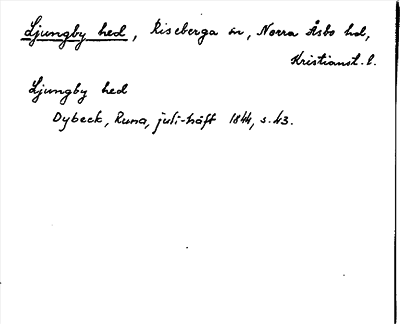 Ljungby hed, Riseberga sn, Norra Åsbo hd,
Kristianst. l.
Ljungby hed
Dybeck, Runa, juli-häft 1844, s. 43.